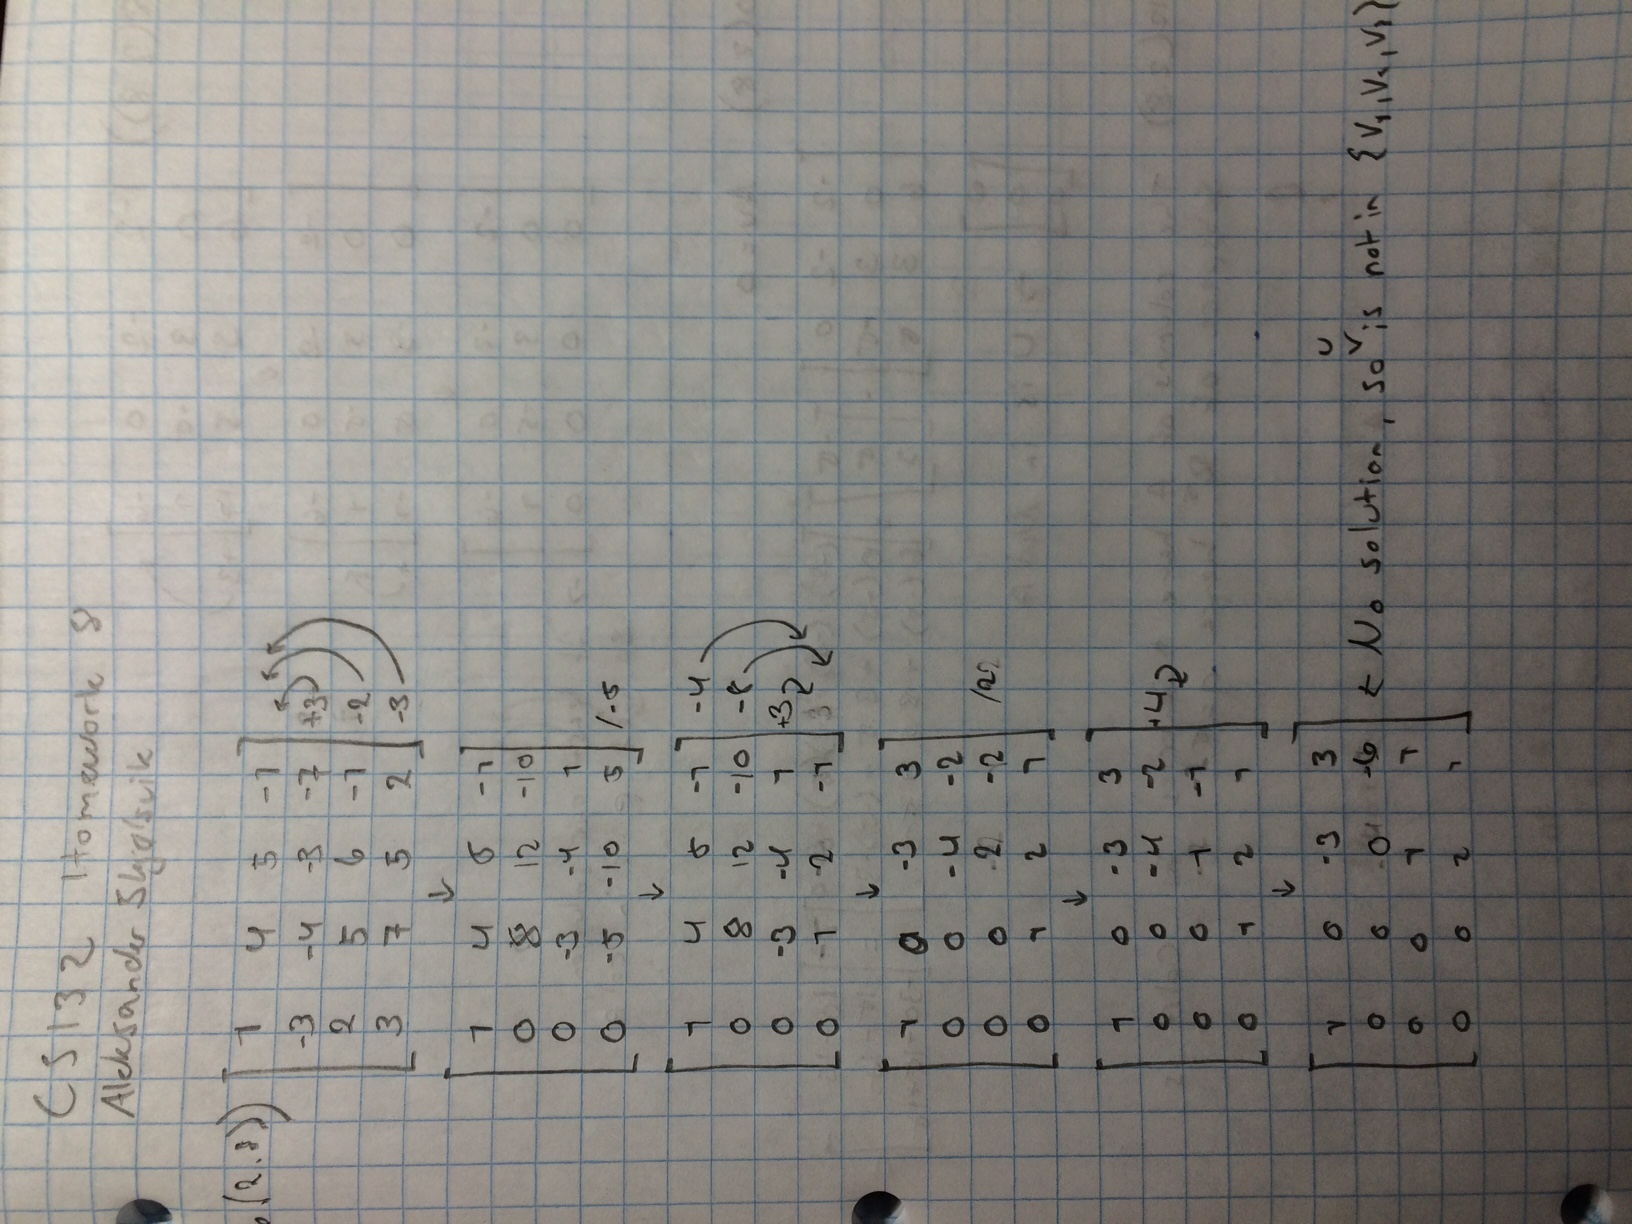 CS132 Homework 8
Aleksander Skjølsvik
(2.8))
1 4 5 -1
-3 -4 -3 -7 +3
2 5 6 -1 -2
3 7 5 2 -3
↓
1 4 5 -1
0 8 12 -10
0 -3 -4 1
0 -5 -10 5 /-5
↓
1 4 5 -1 -4
0 8 12 -10 -8
0 -3 -4 1 +3
0 1 2 -1
↓
1 0 -3 3
0 0 -4 -2
0 0 2 -2
0 1 2 1
↓
1 0 -3 3
0 0 -4 -2 +4
0 0 1 -1
0 1 2 1
↓
1 0 -3 3
0 0 0 -6 ← No solution, so u is not in {v₁, v₂, v₃}
0 0 1 1
0 0 2 1